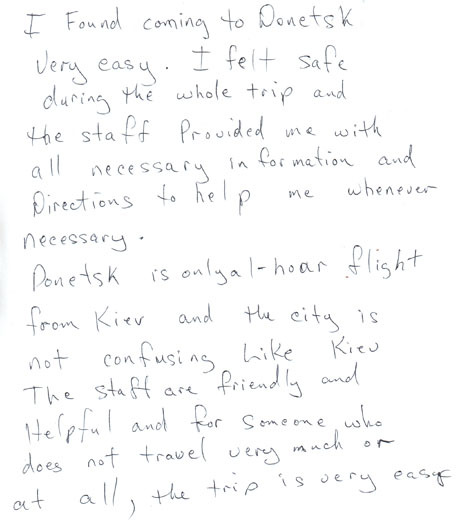 I Found coming to Donetsk
Very easy. I felt safe
during the whole trip and
the staff Provided me with
all necessary information and
Directions to help me whenever
necessary.
Donetsk is only a 1-hoar flight
from Kiev and the city is
not confusing Like Kiev
The staff are friendly and
Helpful and for someone who
does not travel very much or
at all, the trip is very easy